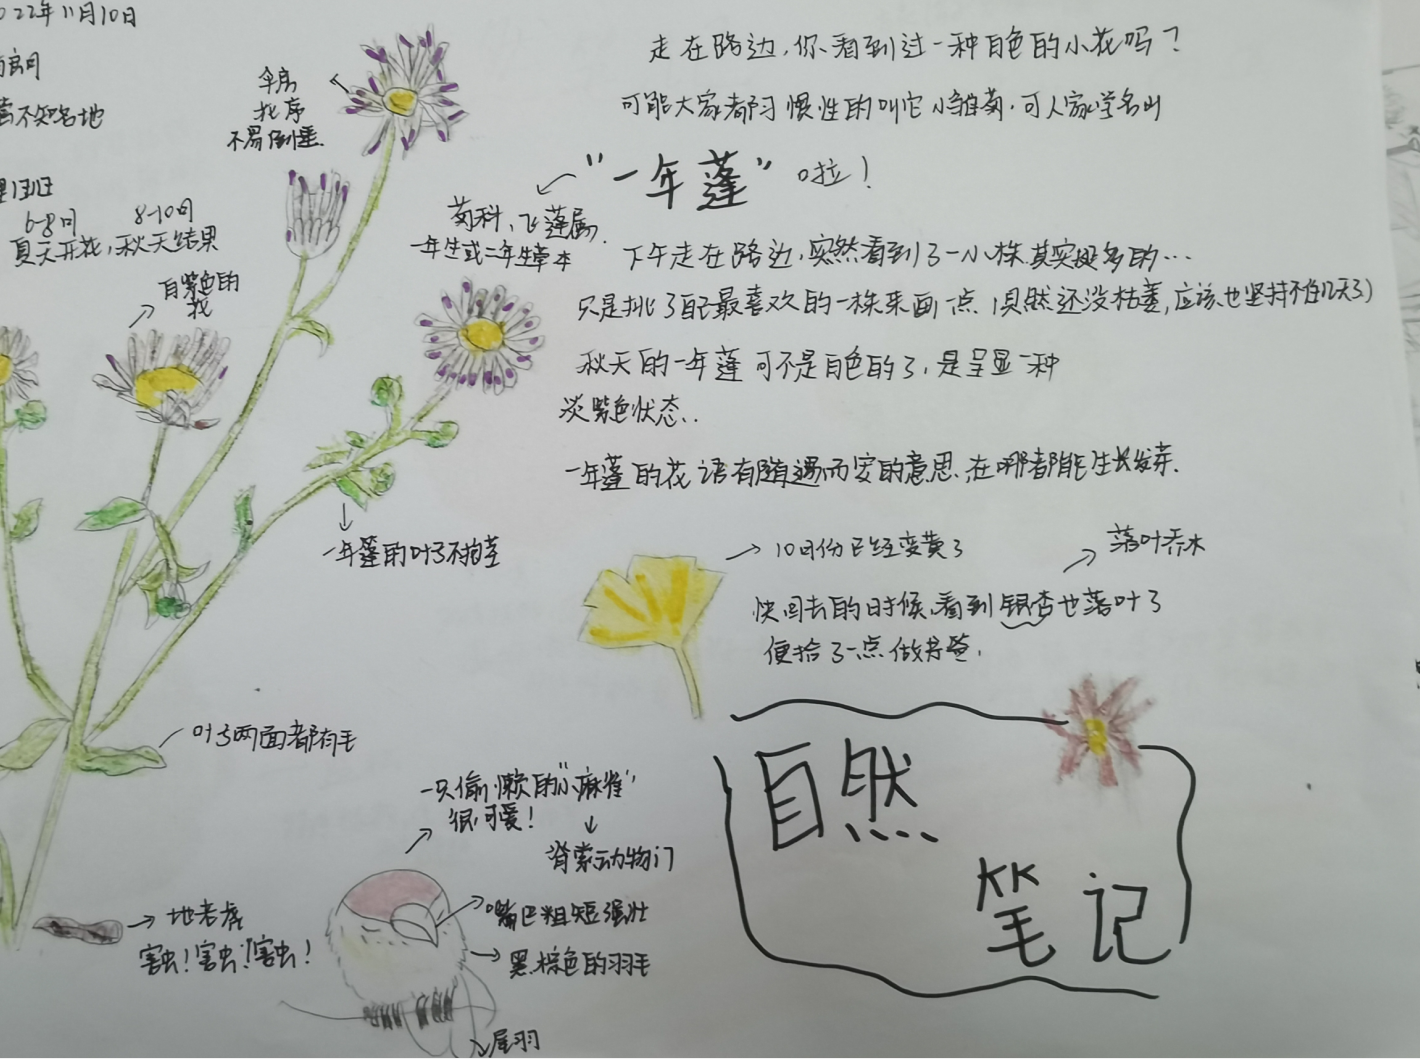 022年11月10日
不知名地
6-8月 8-10月
夏天开花,秋天结果
伞房
花序
不易倒垂.
白紫色的
花
走在路边,你看到过一种白色的小花吗?
可能大家都习惯性的叫它小雏菊,可人家学名叫
"一年蓬"啦!
菊科,飞蓬属.
一年生或二年生草本
下午走在路边,突然看到了一小株.其实挺多的…
只是挑了自己最喜欢的一株来画一点(虽然还没枯萎,应该也坚持不住几天了)
秋天的一年蓬可不是白色的了,是呈显一种
淡紫色状态..
一年蓬的花语有随遇而安的意思,在哪都能生长发芽.
一年蓬的叶子不抱茎
10月份已经变黄了
落叶乔木
快回去的时候,看到银杏也落叶了
便拾了一点做书签.
叶子两面都有毛
一只偷懒的"小麻雀"
很可爱!
脊索动物门
嘴巴粗短强壮
黑棕色的羽毛
尾羽
地老虎
害虫!害虫!害虫!
自然
笔记